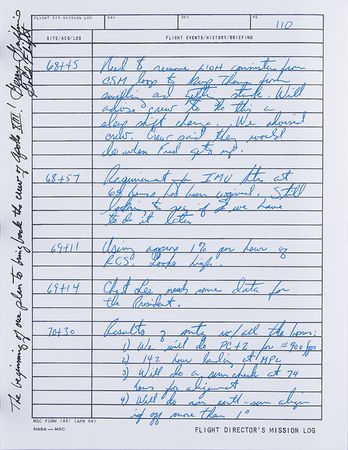 FLIGHT DIR MISSION LOG
DAY
REV
PG
110
SITE/ACQ/LOG
FLIGHT EVENTS/HISTORY/BRIEFING
68+45
Need to remove LiOH canisters from
CSM loop to keep them from
swelling and getting stuck. Will
advise crew to do this @
sleep shift change. We advised
crew. Crew said they would
do when Fred gets up.
68+57
Requirement of IMU htrs at
69 hours has been waived. Still
looking to see if we have
to do it later
69+11
Using approx 1% per hour of
RCS. Looks high.
69+14
Chet Lee needs some data for
the President.
70+30
Results of mtg w/all the bosses:
1) We will do PC+2 for ≈ 900 fps
2) 142 hour landing at MPL
3) Will do a sun check at 74
hours for alignment
4) Will do an earth-sun align
if off more than 1°
The beginning of our plan to bring back the crew of Apollo XIII!
MSC FORM 1441 (APR 68)
NASA — MSC
FLIGHT DIRECTOR'S MISSION LOG